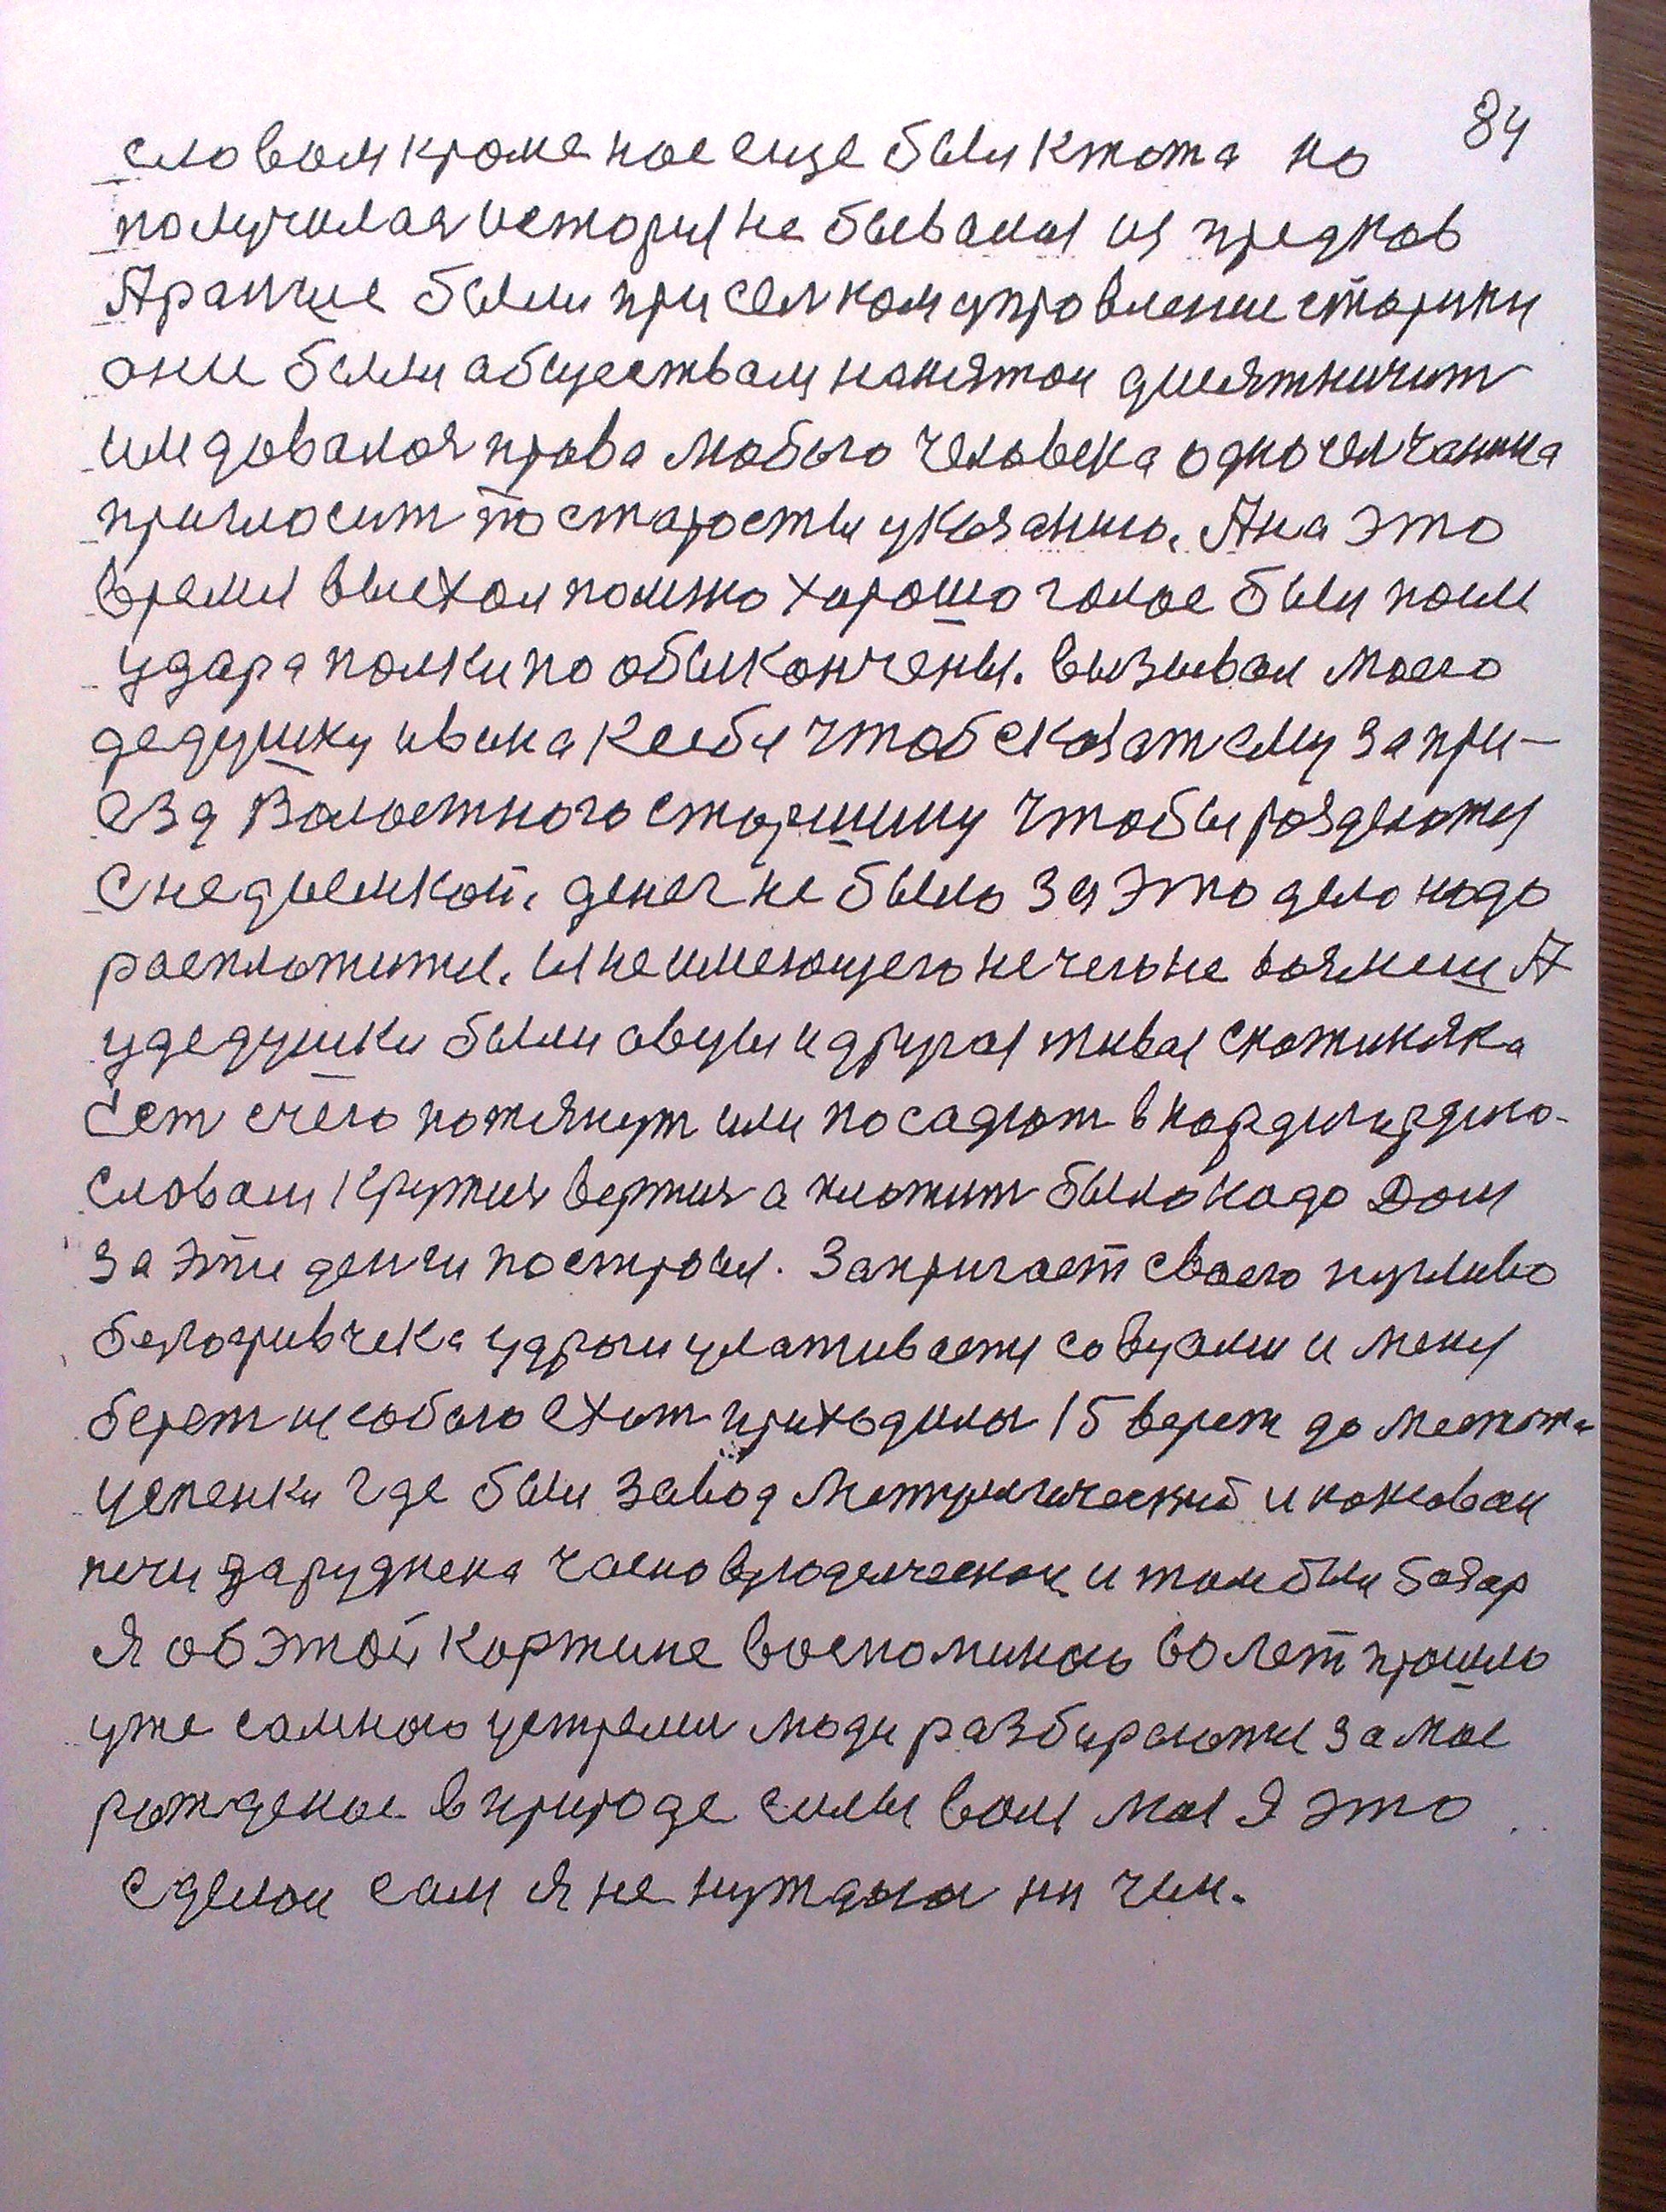 84
словом кроме нас еще были ктота но
получилая история не бывалая из предков
Арапчие были при селком управление старики
они были абществам нанятои дисятничит
им довалоя права любого человека односелчанина
пригласит по старосты указанию. А на это
время выехал можно хорошо голос был
удара палки по обыкончены. вызывал моего
дедушку ивана к себи чтоб сказат ему за при-
езд Волостного старшину чтобы розделатя
с недоемкой, денег не было за это дело надо
расплатитя. И не имеющего нечего не возмеш А
у дедушки были овцы и другая живая скотиняка
Ест с чего потянут или посадют в
словам крутия вертия а платит было надо Дом
за эти денги построил. Запригает своего
белогривчека удрог и улаживаетя со възлы и меня
берет и с собою ехат приходилос 15 верст до места
где был завод Металугический и
печи и там был базар
Я об этой картине воспоминаю 60 лет прошло
уже со мною устреми люди разбираютя за мае
рождение в природе силы воля моя Я это
сделал сам я не нуждаюс ни чем.